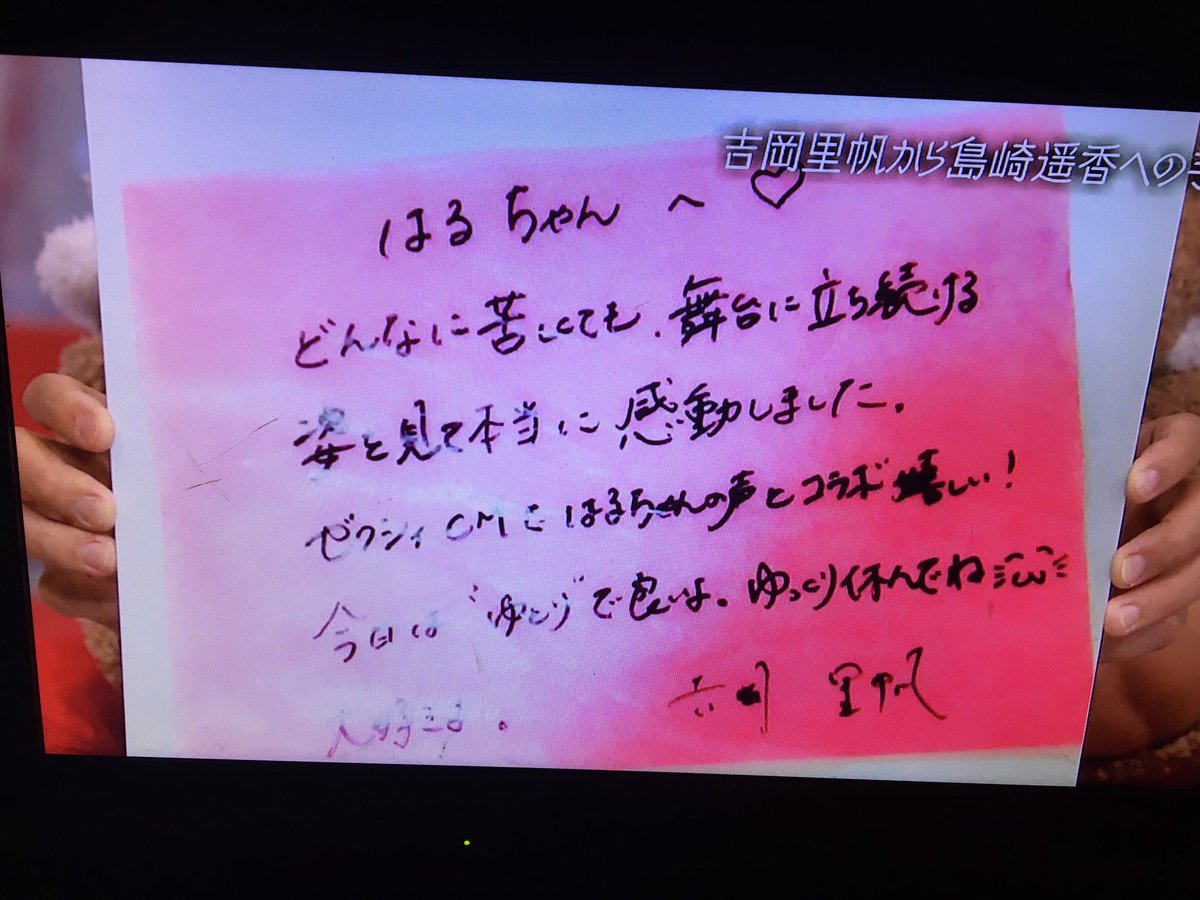 吉岡里帆から島崎遥香への手
はるちゃんへ♡
どんなに苦しくても、舞台に立ち続ける
姿を見て本当に感動しました。
ゼクシィCMではるちゃんの声とコラボ嬉しい!
今日は"ゆとり"で良いよ。ゆっくり休んでね
大好きよ。
吉岡 里帆